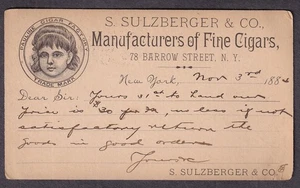 S. SULZBERGER & CO.,
Manufacturers of Fine Cigars,
78 BARROW STREET, N. Y.
CIGAR FACTORY
TRADE MARK
New York, Nov 3rd 1884
Dear Sir: Yours 31st to hand our
price is 30 no less if not
satisfactory return the
goods in good order
S. SULZBERGER & CO.